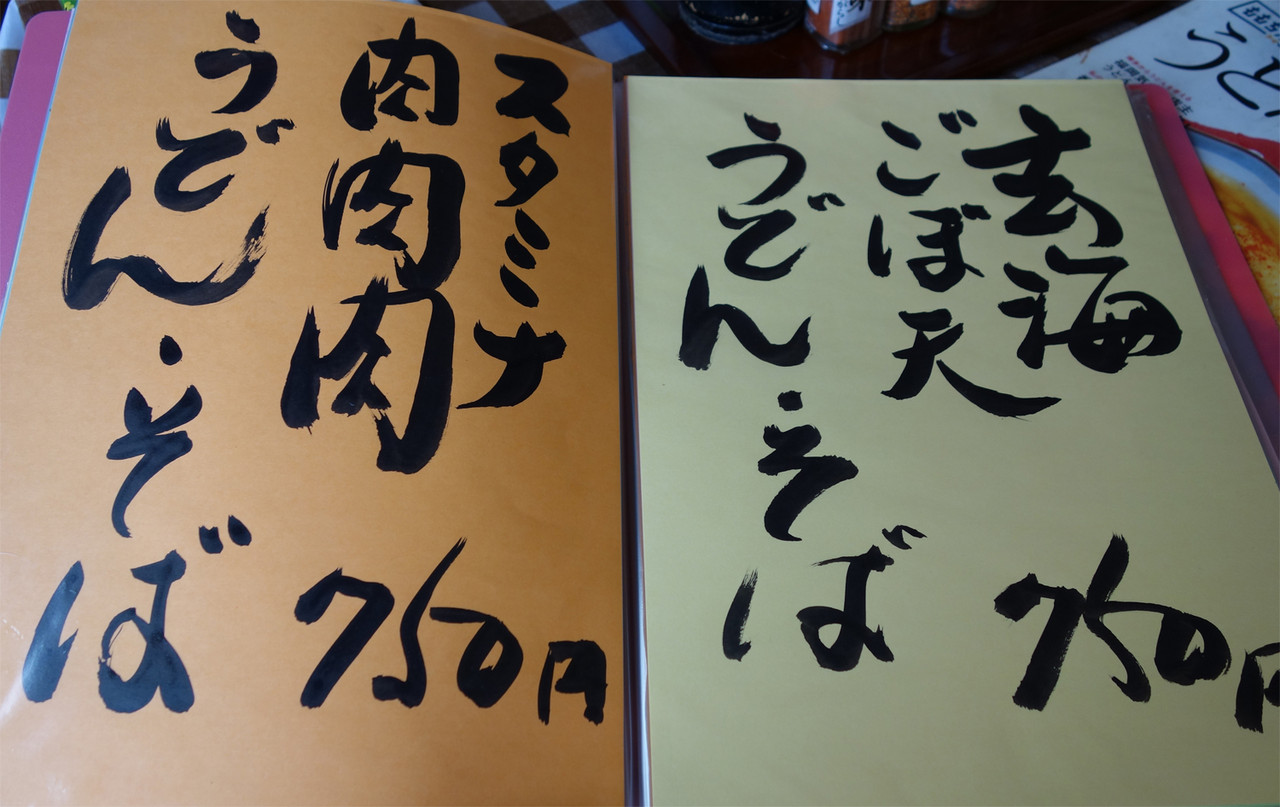 玄海
ごぼ天
うどん・そば
750円
スタミナ
肉肉肉
うどん・そば
750円
うどん